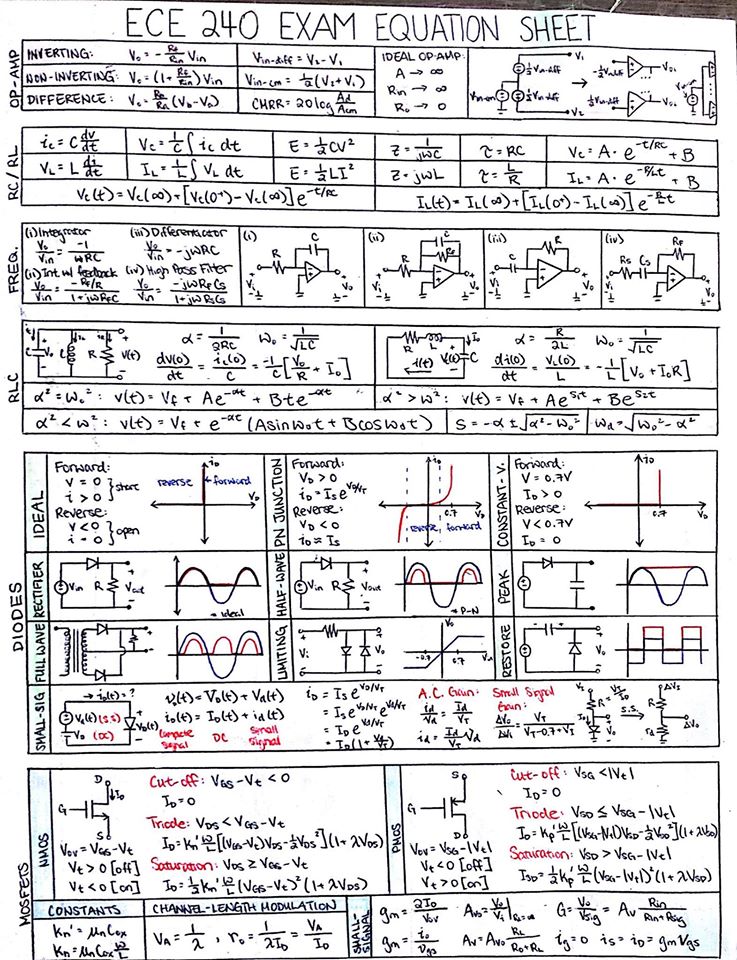 ECE 240 EXAM EQUATION SHEET
OP-AMP
INVERTING: Vo = -RF/Rin Vin
NON-INVERTING: Vo = (1+RF/Rin)Vin
DIFFERENCE:
Vin-diff = V2-V1
Vin-cm = 1/2(V2+V1)
CMRR = 20log Ad/Acm
IDEAL OP-AMP:
A → ∞
Rin → ∞
Ro → 0
Vin-cm
1/2Vin-diff
1/2Vin-diff
V1
V2
-1/2Vin-diff
1/2Vin-diff
RC / RL
ic = C dv/dt
Vc = 1/C ∫ ic dt
E = 1/2CV²
Z = 1/jωC
τ = RC
Vc = A · e^-t/RC + B
VL = L di/dt
IL = 1/L ∫ VL dt
E = 1/2LI²
Z = jωL
τ = L/R
IL = A · e^-R/Lt + B
Vc(t) = Vc(∞) + [Vc(0+) - Vc(∞)] e^-t/RC
IL(t) = IL(∞) + [IL(0+) - IL(∞)] e^-R/Lt
FREQ.
(i) Integrator
Vo/Vin = -1/ωRC
(iii) Differentiator
Vo/Vin = -jωRC
(ii) Int. w/ feedback
Vo/Vin = -RF/R/1+jωRFC
(iv) High Pass Filter
Vo/Vin = -jωRFCs/1+jωRsCs
(i)
R
C
Vi
Vo
(ii)
R
C
RF
Vi
Vo
(iii)
C
R
Vi
Vo
(iv)
Rs Cs
RF
Vi
Vo
RLC
C
L
R
V(t)
α = 1/2RC
ωo = 1/√LC
dv(0)/dt = ic(0)/C = -1/C [Vo/R + Io]
R L
Io
i(t)
V(t)
C
α = R/2L
ωo = 1/√LC
di(0)/dt = VL(0)/L = -1/L [Vo + IoR]
α² = ωo²: v(t) = VF + Ae^-αt + Bte^-αt
α² > ω²: v(t) = VF + Ae^s1t + Be^s2t
α² < ω²: v(t) = VF + e^-αt (Asinωdt + Bcosωdt)
S = -α ± √α² - ωo²
ωd = √ωo² - α²
DIODES
IDEAL
Forward:
V = 0
i > 0
} short
Reverse:
V < 0
i = 0
} open
iD
reverse
forward
VD
PN JUNCTION
Forward:
VD > 0
iD = Is e^VD/VT
Reverse:
VD < 0
iD ≈ Is
iD
0.7
VD
reverse
forward
CONSTANT-V.
Forward:
V = 0.7V
ID > 0
Reverse:
V < 0.7V
ID = 0
iD
0.7
VD
RECTIFIER
Vin
R
Vout
ideal
HALF-WAVE
Vin
R
Vout
P-N
PEAK
FULL WAVE
LIMITING
Vi
Vo
-0.7
0.7
Vo
RESTORE
SMALL-SIG
→ iD(t) = ?
Vd(t) (S.S.)
VD (DC)
VD(t)
VD(t) = VD(t) + Vd(t)
iD(t) = ID(t) + id(t)
complete signal
DC
small signal
iD = Is e^VD/VT
= Is e^VD/VT e^Vd/VT
= ID e^Vd/VT
= ID(1 + Vd/VT)
A.C. Gain:
id/Vd = ID/VT
id = ID/VT Vd
Small Signal Gain:
ΔVo/ΔVi = VT/VT-0.7+VI
S.S.
ΔVi
R
ΔVo
rd
MOSFETS
NMOS
D
ID
G
S
VOV = VGS-Vt
Vt > 0 [off]
Vt < 0 [on]
Cut-off: VGS-Vt < 0
ID = 0
Triode: VDS < VGS-Vt
ID = kn' W/L [(VGS-Vt)VDS - 1/2VDS²](1+λVDS)
Saturation: VDS ≥ VGS-Vt
ID = 1/2 kn' W/L (VGS-Vt)²(1+λVDS)
PMOS
S
G
D
VOV = VSG-|Vt|
Vt < 0 [off]
Vt > 0 [on]
Cut-off: VSG < |Vt|
ID = 0
Triode: VSD ≤ VSG-|Vt|
ID = kp' W/L [(VSG-|Vt|)VSD - 1/2VSD²](1+λVSD)
Saturation: VSD > VSG-|Vt|
ISD = 1/2 kp' W/L (VSG-|Vt|)²(1+λVSD)
CONSTANTS
kn' = μnCox
kn = μnCox W/L
CHANNEL-LENGTH MODULATION
VA = 1/λ , ro = 1/λID = VA/ID
SMALL-SIGNAL
gm = 2ID/VOV
AVO = Vo/Vi |RL=∞
G = Vo/Vsig = Av Rin/Rin+Rsig
gm = io/Vgs
Av = AVO RL/RL+Ro
ig = 0 is = iD = gmVgs